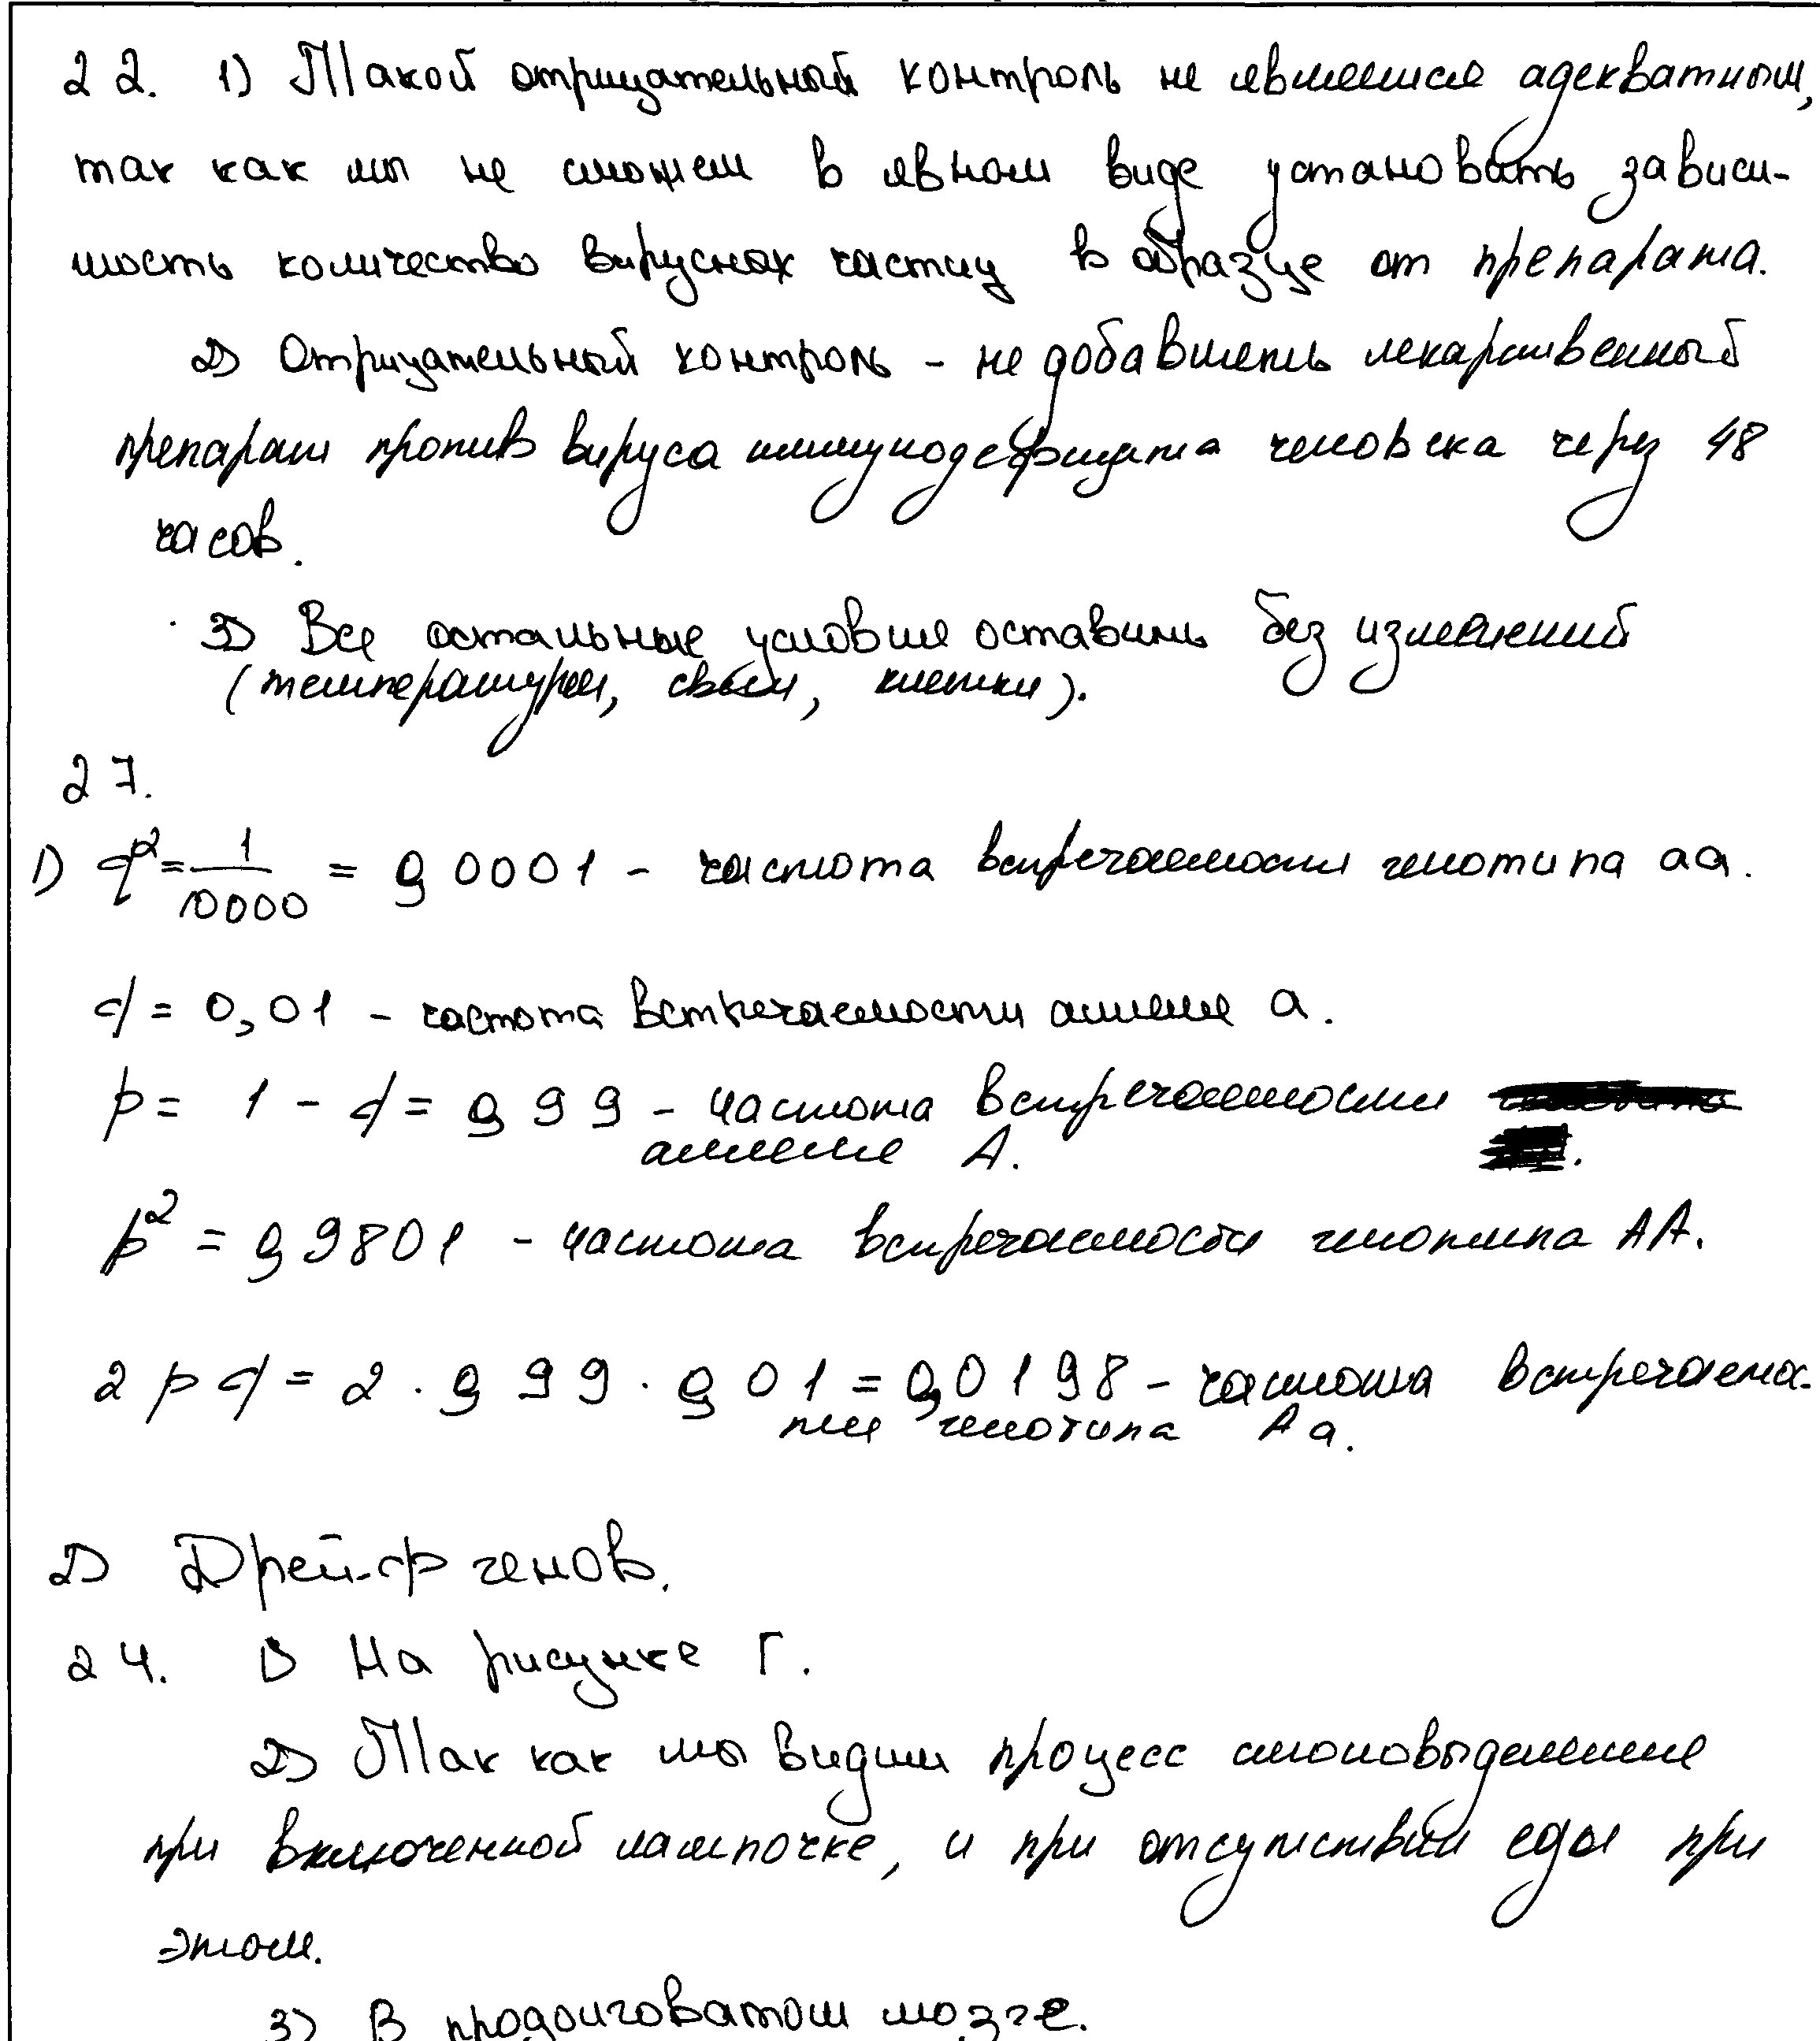 22. 1) Такой отрицательный контроль не является адекватным,
так как мы не сможем в явном виде установить зависи-
мость количество вирусных частиц в образце от препарата.
2) Отрицательный контроль - не добавлять лекарственный
препарат против вируса иммунодефицита человека через 48
часов.
3) Все остальные условия оставить без изменений
(температуры, свыи, клетки).
27.
1) q² = 1/10000 = 0,0001 - частота встречаемости генотипа aa.
q = 0,01 - частота встречаемости аллеля a.
p = 1 - q = 0,99 - частота встречаемости
аллеля А.
p² = 0,9801 - частота встречаемости генотипа АА.
2pq = 2 · 0,99 · 0,01 = 0,0198 - частота встречаемос-
ти генотипа Аа.
2) Дрейф генов.
24. 1) На рисунке Г.
2) Так как мы видим процесс слюновыделения
при включенной лампочке, и при отсутствии еды при
этом.
3) В продолговатом мозге.